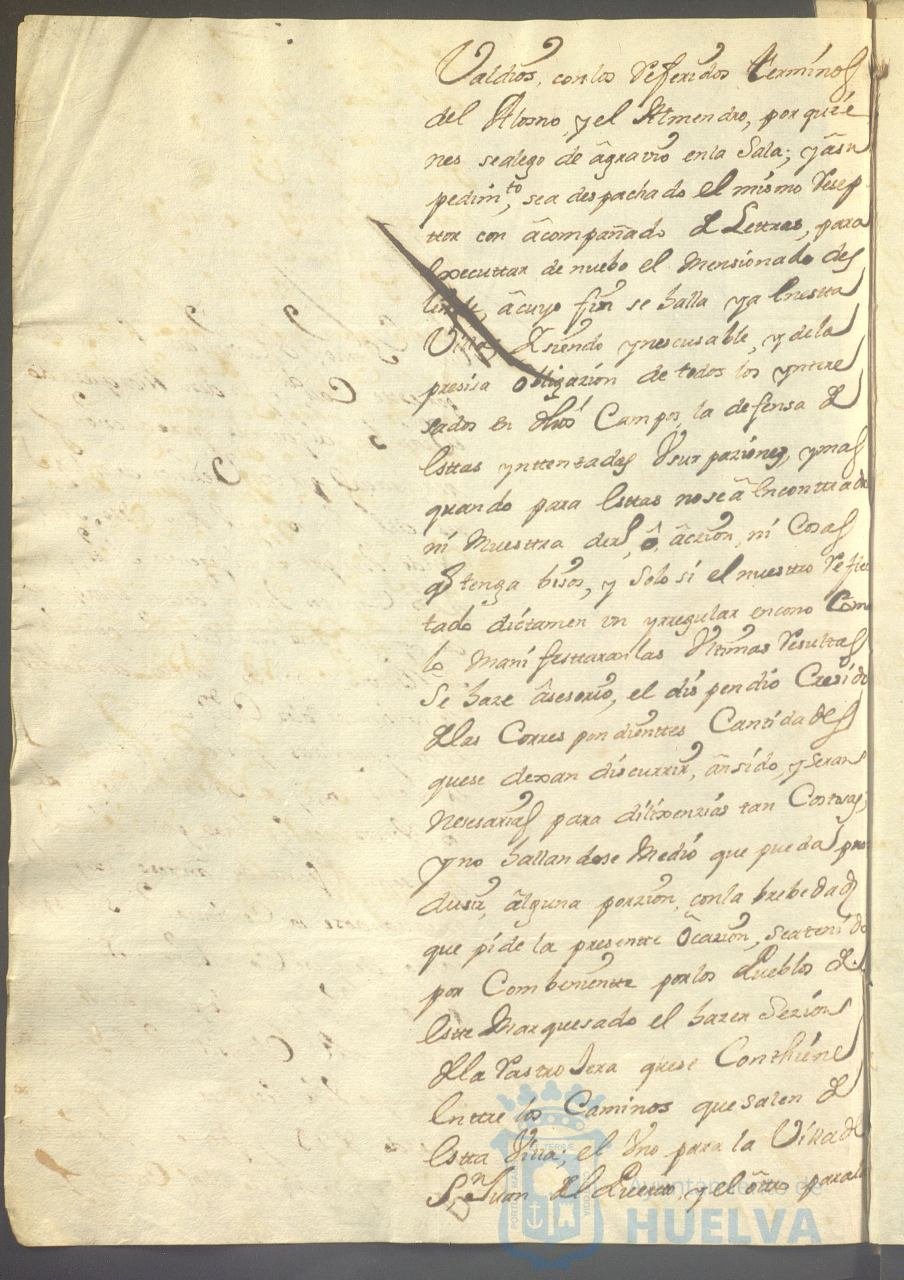 Valdios, con los referidos terminos
del Alosno, y el Almendro, por quié
nes se alego de âgravio en la Sala; y âsu
pedim.to, sea despachado el mismo Resep
ttor con âcompañado de Lettras, para
executtar de nuebo el mensionado des
linde, âcuyo fin se halla ya en estta
Villa; Y siendo ynescusable, y de la
presisa obligazion de todos los yntere
sados en dhos Campos, la defensa de
esttas ynttentadas Vsurpaziones, y mas
quando para esttas no se â encontrado
ni muesttra de ô âczion, ni Cosa
q tenga bisos, y solo si el nuesttro
tado dictamen vn yrregular encono Como
lo manifesttaran las Vltimas resultas
Se haze âsesorio, el dispendio Cresido
de las Correspondienttes Cantidades
que se dexan discurrir, ân sido, y seran
nesesarias para dilixenzias tan Costosas;
y no hallandose Medio que pueda pro
dusir, âlguna porzion, con la brebedad
que pide la presentte ôcazion, sea tenido
por Combenientte por los Pueblos de
estte Marquesado el hazer Sezion
de la Rastrojera que se Conthiene
enttre los Caminos que salen de
estta Villa; el Vno para la Villa de
S.n Juan del Puertto, y el ôttro para la
Ayuntamiento de
HUELVA